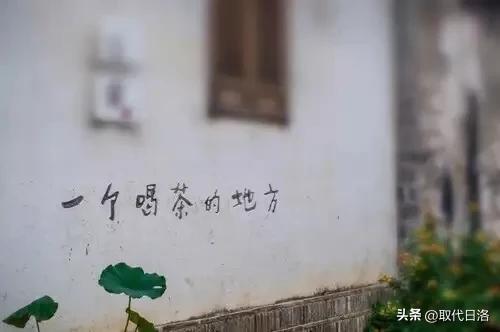 一个喝茶的地方
头条 @取代日洛